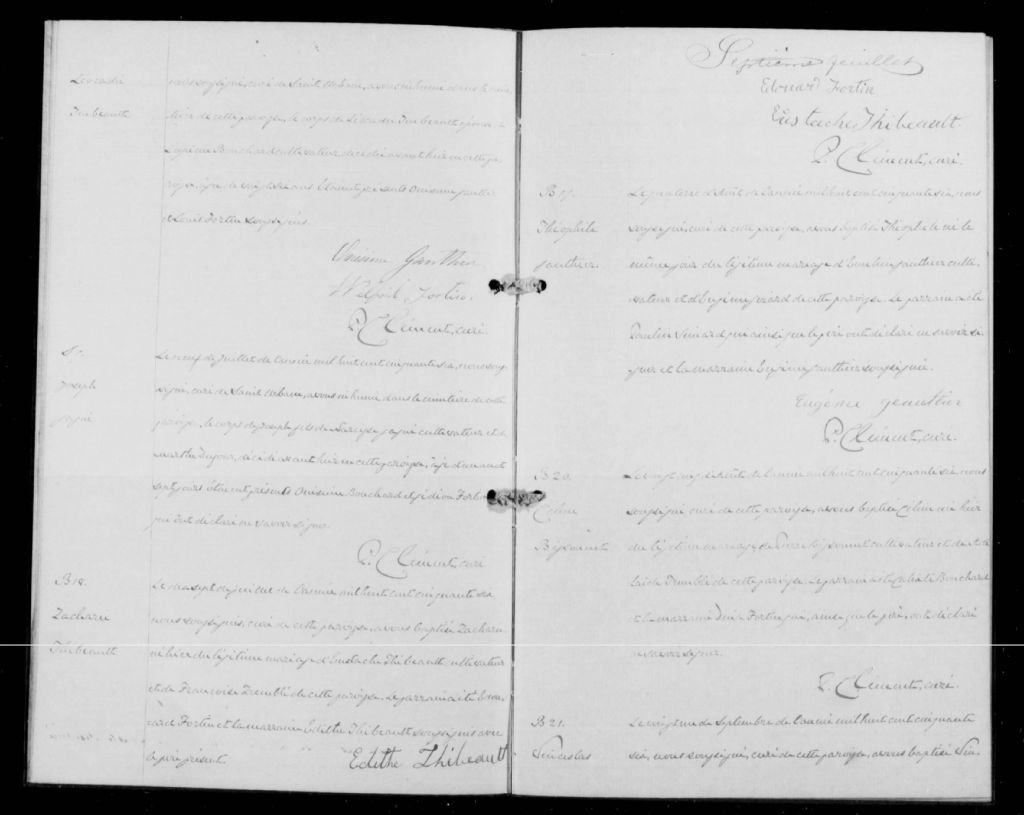 Léocadie
Imbeault
nous soussigné, curé de Saint Urbain, avons inhumé dans le cime-
tière de cette paroisse, le corps de Léocadie Imbeault épouse de
Bouchard cultivateur décédée avant hier en cette pa-
roisse, âgée de vingt six ans. Étaient présents Onésime Gauthier
et Louis Fortin soussignés.
Onésime Gauthier
Fortin.
P. Clément, curé
S7.
Joseph
Le neuf de juillet de l'année mil huit cent cinquante six, nous sous-
signé, curé de Saint Urbain, avons inhumé dans le cimetière de cette
paroisse, le corps de Joseph fils de Narcisse cultivateur et de
Marthe Dufour, décédé avant hier en cette paroisse, âgé d'un an et
sept jours. Étaient présents Onésime Bouchard et Fortin
qui ont déclaré ne savoir signer.
P. Clément, curé
B18.
Zacharie
Thibeault
Le dix sept de de l'année mil huit cent cinquante six
nous soussigné, curé de cette paroisse, avons baptisé Zacharie
né hier du légitime mariage d'Eustache Thibeault cultivateur
et de Françoise Tremblé de cette paroisse. Le parrain a été Edou-
ard Fortin et la marraine Edithe Thibeault soussignés avec
le père présent.
Edithe Thibeault
Septième feuillet
Edouard Fortin
Eustache Thibeault
P. Clément, curé.
B 19.
Théophile
Gauthier.
Le quatorze d'août de l'année mil huit cent cinquante six, nous
soussigné, curé de cette paroisse, avons baptisé Théophile né le
même jour du légitime mariage d' Gauthier culti-
vateur et d' de cette paroisse. Le parrain a été
Paulin Simard qui ainsi que le père ont déclaré ne savoir si-
gner et la marraine Eugénie Gauthier soussignée.
Eugénie Gauthier
P. Clément, curé.
B 20.
Céline
Bissonnet
Le vingt d'août de l'année mil huit cent cinquante six, nous
soussigné curé de cette paroisse, avons baptisé Céline née hier
du légitime mariage de Bissonnet cultivateur et de
Tremblé de cette paroisse. Le parrain a été Bouchard
et la marraine Fortin qui, ainsi que le père, ont déclaré
ne savoir signer.
P. Clément, curé.
B 21.
Le vingt de Septembre de l'année mil huit cent cinquante
six, nous soussigné, curé de cette paroisse, avons baptisé